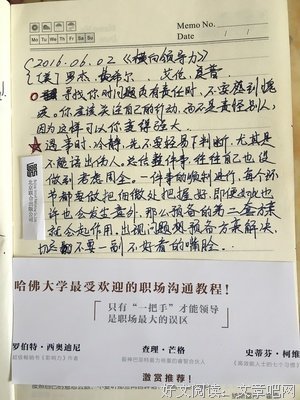 Memo No.
Mo Tu We Th Fr Sa Su
Date / /
(2016.06.02《横向领导力》
[美]罗杰·费希尔 艾伦·夏普
寻找你对问题负有责任时，不要感到愧
疚。你应该关注自己的行动，而不是责怪别人，
因为这样可以你变得强大.
遇事时，冷静，先不要轻易下判断，尤其是
不能语出伤人。总结整件事，往往自己也没
做到考虑周全。一件事的顺利进行，每个环
节都要做把怕做处把握好，即使如此也
许也会发生意外，那么预备的第二套方案
就会起作用，出现问题想预备方案解决，
切忌不要一副不好看的嘴脸…
北京联合出版公司
哈佛大学最受欢迎的职场沟通教程！
只有“一把手”才能领导
是职场最大的误区
罗伯特·西奥迪尼
查理·芒格
史蒂芬·柯维
超级畅销书《影响力》作者
股神巴菲特最为倚重的黄金合伙人
《高效能人士的七个习惯》
激赏推荐！
好文阅读：文章吧网